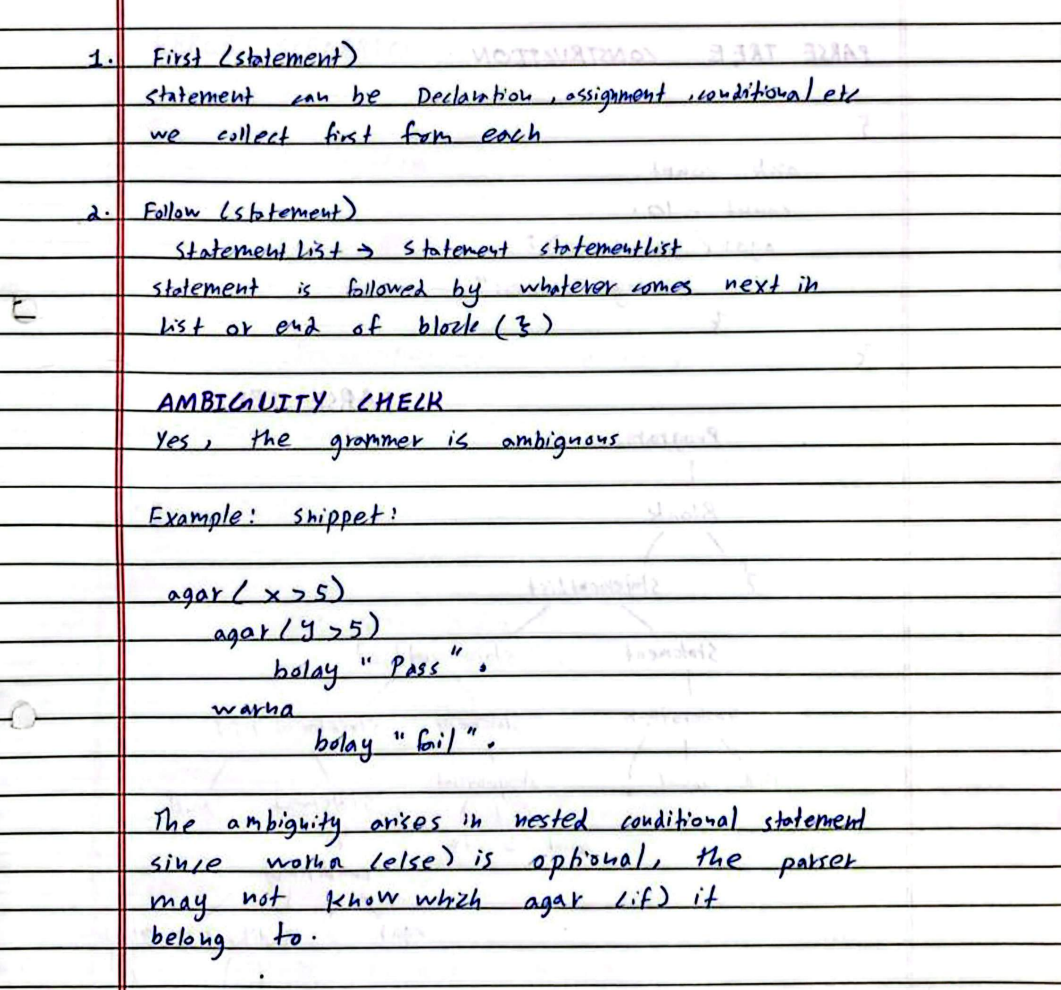 1. First (statement)
statement can be Declaration, assignment, conditional etc
we collect first from each
2. Follow (statement)
Statement List → Statement statementlist
statement is followed by whatever comes next in
list or end of block (})
AMBIGUITY CHECK
Yes, the grammer is ambiguous
Example: snippet:
agar ( x > 5)
agar ( y > 5)
bolay " Pass ".
warna
bolay " fail ".
The ambiguity arises in nested conditional statement
since warna (else) is optional, the parser
may not know which agar (if) it
belong to.